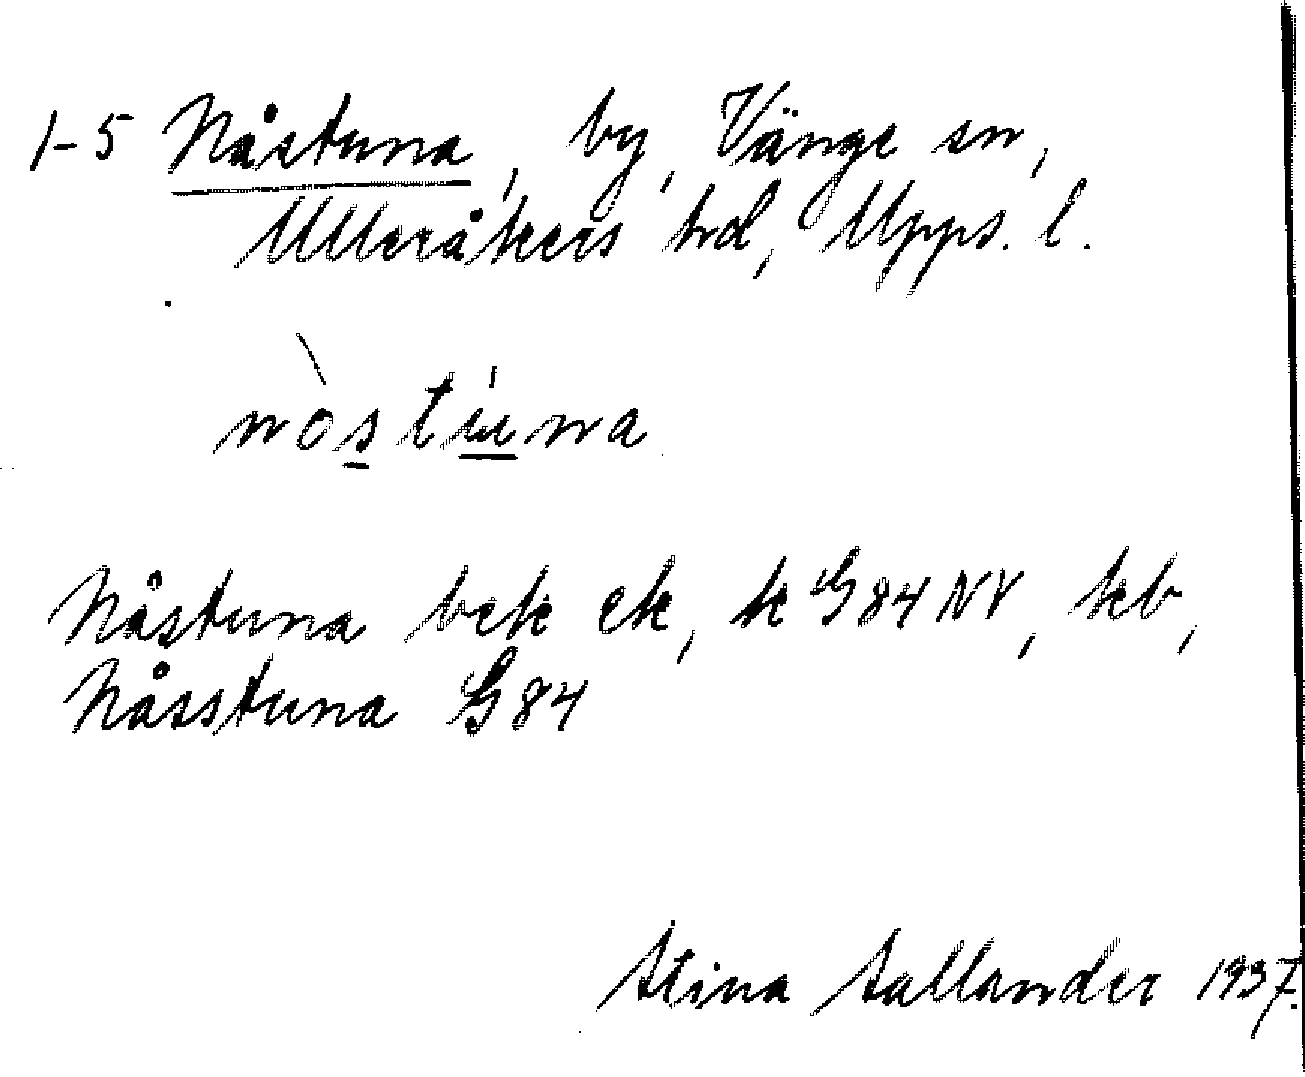 1-5 Nåstuna, by, Vänge sn,
Ulleråkers hd, Upps. l.
nòstúna
Nåstuna bek ek, k G84 NV, kb,
Nåsstuna G84
Stina Sallander 1937.